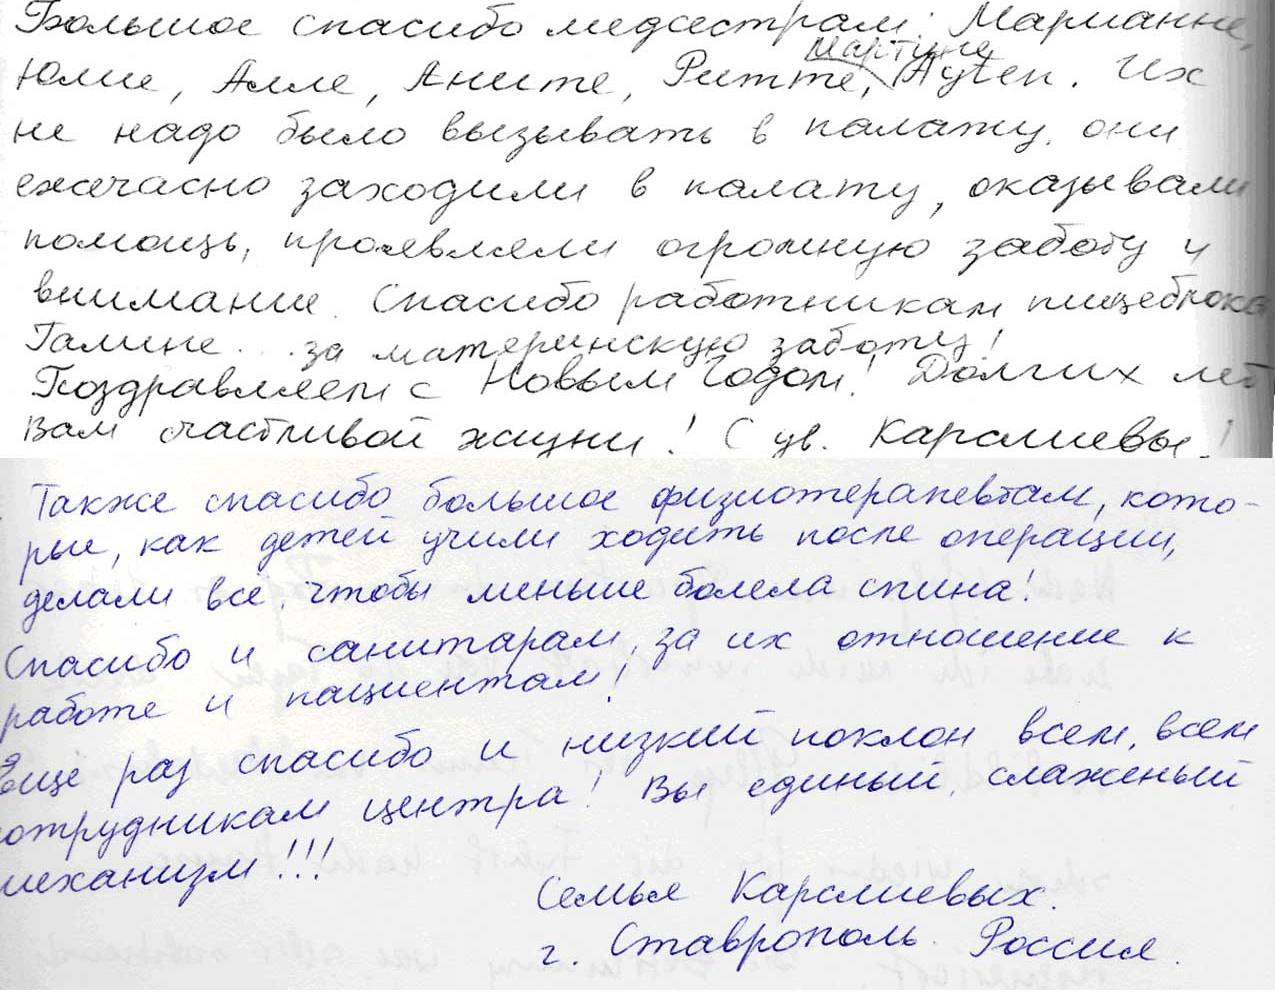 Большое спасибо медсестрам: Марианне,
Мартине
Юлие, Алле, Аните, Ритте, Ayten. Их
не надо было вызывать в палату, они
ежечасно заходили в палату, оказывали
помощь, проявляли огромную заботу и
внимание. Спасибо работникам пищеблока
Галине... за материнскую заботу!
Поздравляем с Новым Годом! Долгих лет
Вам счастливой жизни! С ув. Карслиевы!
Также спасибо большое физиотерапевтам, кото-
рые, как детей учили ходить после операции,
делали все, чтобы меньше болела спина!
Спасибо и санитарам, за их отношение к
работе и пациентам!
Еще раз спасибо и низкий поклон всем, всем
сотрудникам центра! Вы единый, слаженый
механизм!!!
Семья Карслиевых.
г. Ставрополь. Россия.